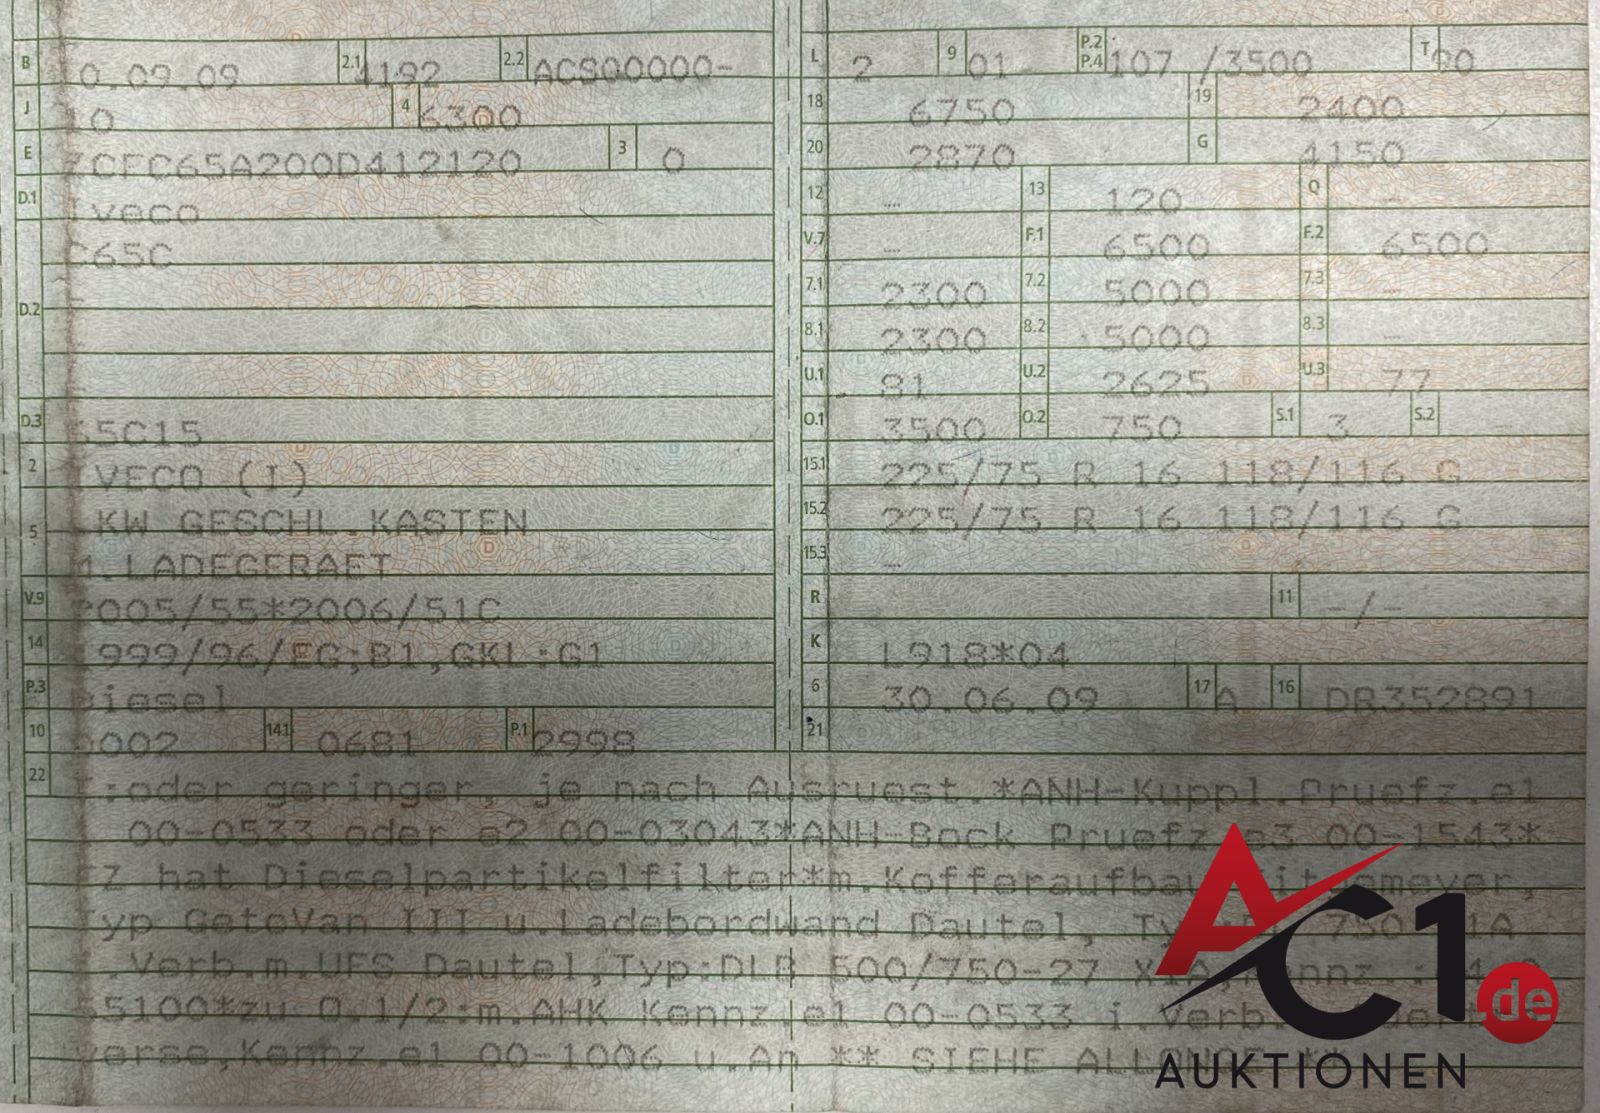 B 0.09.09 2.1 4192 2.2 ACS00000-
J 10 4 6300
E ZCFC65A200D412120 3 0
D.1 Iveco
C65C
D.2 -
D.3 65C15
2 IVECO (I)
5 LKW GESCHL.KASTEN
M.LADEGERAET
V.9 2005/55*2006/51C
14 1999/96/EG;B1,GKL:G1
P.3 Diesel
10 0002 14.1 0681 P.1 2998
L 2 9 01 P.2 P.4 107 /3500 T 90
18 6750 19 2400
20 2870 G 4150
12 — 13 120 Q -
V.7 — F.1 6500 F.2 6500
7.1 2300 7.2 5000 7.3 -
8.1 2300 8.2 5000 8.3 -
U.1 81 U.2 2625 U.3 77
O.1 3500 O.2 750 S.1 3 S.2 -
15.1 225/75 R 16 118/116 G
15.2 225/75 R 16 118/116 G
15.3 —
R 11 -/-
K L918*04
6 30.06.09 17 A 16 DR352891
21
22 T:oder geringer, je nach Ausruest.*ANH-Kuppl.Pruefz.e1
00-0533 oder e2 00-03043*ANH-Bock Pruefz.e3 00-1543*
FZ hat Dieselpartikelfilter*m.Kofferaufbau
Typ GetoVan III u.Ladebordwand Dautel,
.Verb.m.UFS Dautel,Typ:DLB 500/750-27
55100*zu O.1/2:m.AHK Kennz.e1 00-0533 i.Verb.
verse,Kennz.e1 00-1006 u.An ** SIEHE ALLONGE **
AC1.de
AUKTIONEN